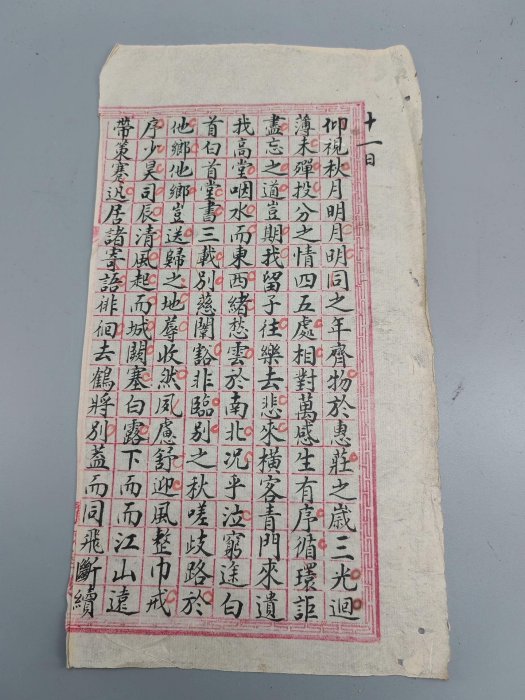 十一日
仰視秋月明月明同之年齊物於惠莊之歲三光迴
薄未殫投分之情四五處相對萬感生有序循環詎
盡忘之道豈期我留子住樂去悲來橫客青門來遺
我高堂咽水而東西緒愁雲於南北況乎泣窮途白
首白首堂書三載別慈闈豁非臨別之秋嗟歧路於
他鄉他鄉豈送歸之地蓐收然夙慮舒迎風整巾戒
序少昊司辰清風起而城闕塞白露下而而江山遠
帶策蹇迅居諸寄語徘徊去鶴將別蓋而同飛斷續